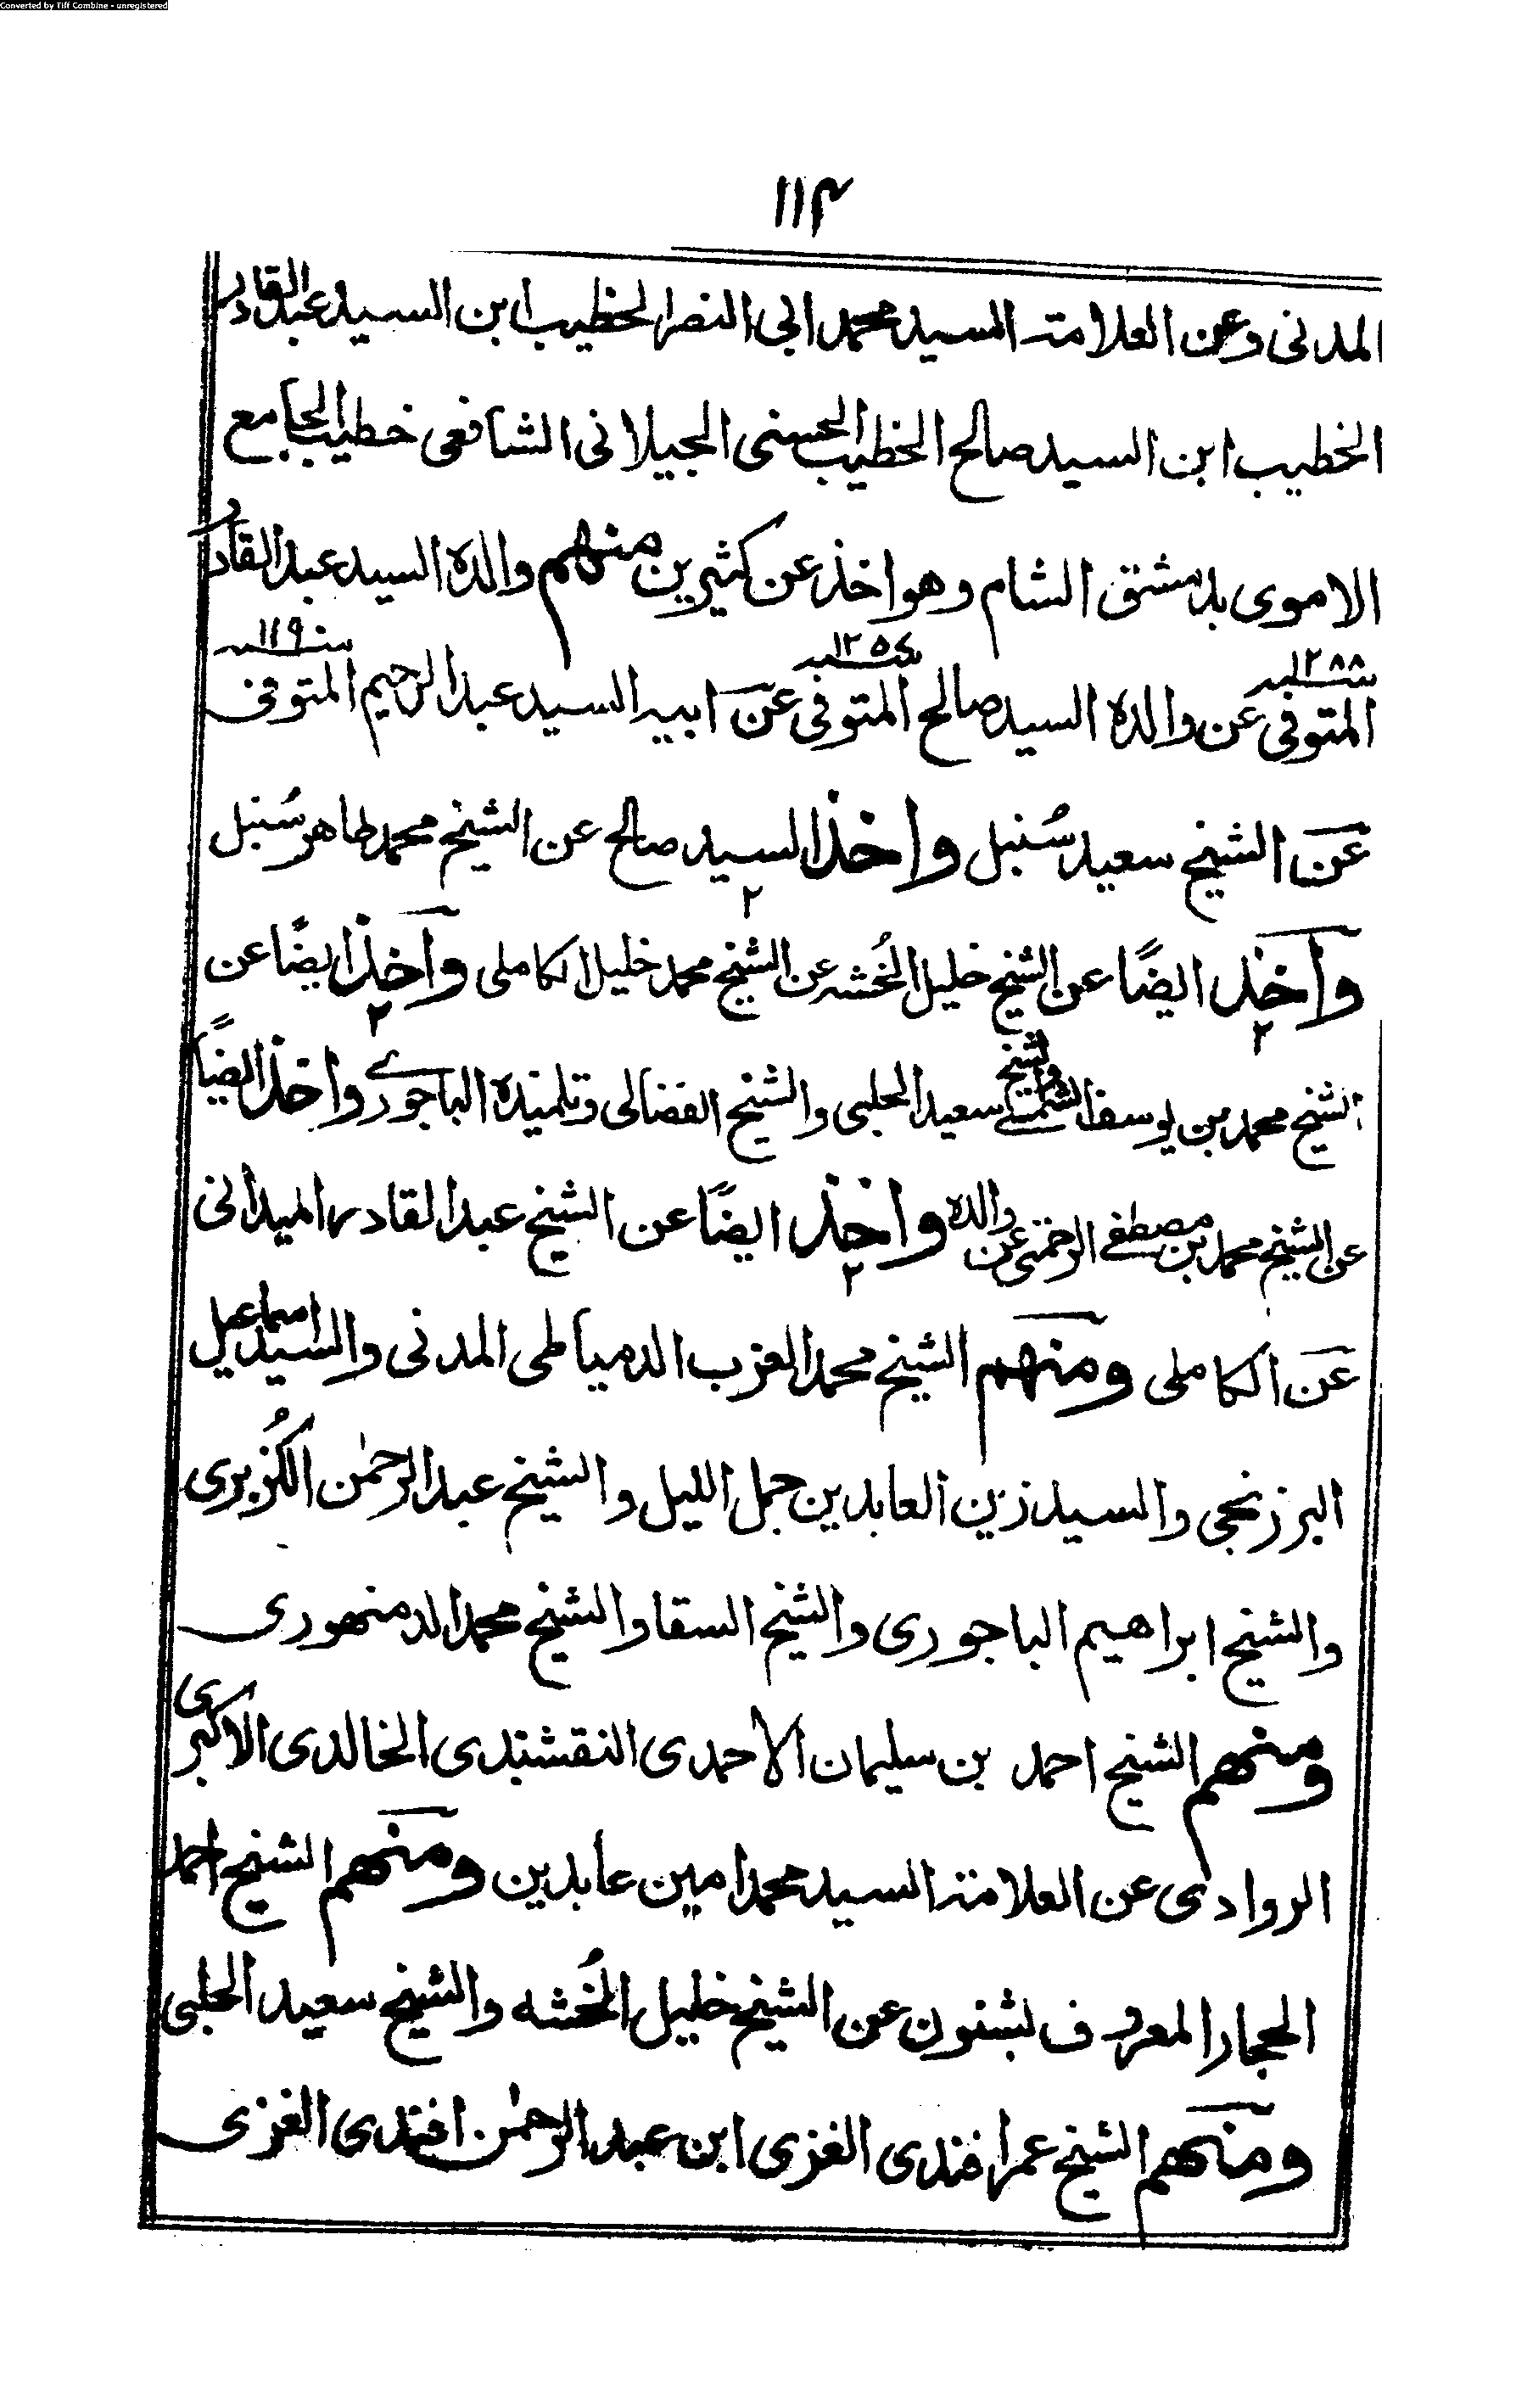 Converted by Tiff Combine - unregistered
١١٣
المدنى وعن العلامة السيد محمد ابى النصر الخطيب ابن السيد عبد القادر
الخطيب ابن السيد صالح الخطيب الحسنى الجيلانى الشافعى خطيب الجامع
الاموى بدمشق الشام وهو اخذ عن كثيرين منهم والده السيد عبد القادر
المتوفى سنة ١٢٨٨ عن والده السيد صالح المتوفى سنة عن ابيه السيد عبد الرحيم المتوفى سنة
عن الشيخ سعيد سُنبل واخذ السيد صالح عن الشيخ محمد طاهر سُنبل
واخذ ايضًا عن الشيخ خليل الخُشه عن الشيخ محمد خليل الكاملى واخذ ايضًا عن
الشيخ محمد بن يوسف الشمسے والشيخ سعيد الحلبى والشيخ الفضالى وتلميذه الباجورے واخذ ايضًا
عن الشيخ محمد بن مصطفے الرحمتى عن والده واخذ ايضًا عن الشيخ عبد القادر الميدانى
عن الكاملى ومنهم الشيخ محمد العزب الدمياطى المدنى والسيد اسماعيل
البرزنجى والسيد زين العابدين جمل الليل والشيخ عبد الرحمٰن الكُزبرى
والشيخ ابراهيم الباجورى والشيخ السقا والشيخ محمد الدمنهورى
ومنهم الشيخ احمد بن سليمان الاحمدى النقشبندى الخالدى الاكبرى
الروادى عن العلامة السيد محمد امين عابدين ومنهم الشيخ احمد
الحجار المعروف بشنون عن الشيخ خليل الخُشه والشيخ سعيد الحلبى
ومنهم الشيخ عمر افندى الغزى ابن عبد الرحمٰن افندى الغزى